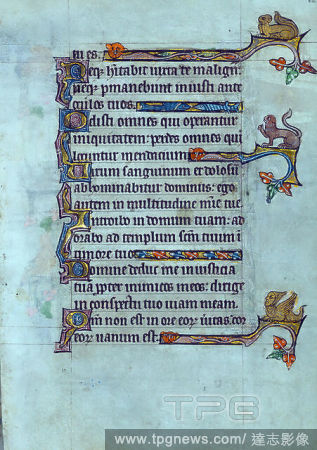 tu es.
Neq; hītabit iuxta te malign
neq; pmanebunt iniusti ante
oculos tuos.
Odisti omnes qui operantur
iniquitatem: perdes omnes qui
locuntur mendacium
Uirum sanguinum et dolosū
abhominabitur dominus: ego
autem in multitudine mīe tue
Introibo in domum tuam: ad
orabo ad templum scm̄ tuum i
timore tuo
Domine deduc me in iusticia
tua ppter inimicos meos: dirige
in conspectu tuo uiam meam.
Qm̄ non est in ore eor ueritas: cor
eor uanum est.
TPG
www.tpgnews.com/ 達志影像